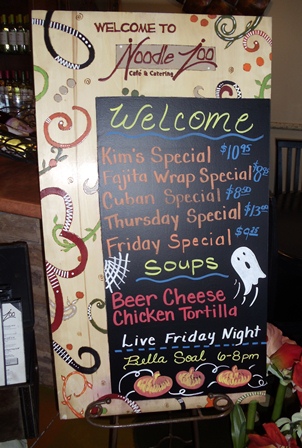 WELCOME TO
Noodle Zoo
Café & Catering
Welcome
Kim's Special $10.95
Fajita Wrap Special
Cuban Special $8.50
Thursday Special $13.00
Friday Special
SOUPS
Beer Cheese
Chicken Tortilla
Live Friday Night
Bella Soal 6-8pm